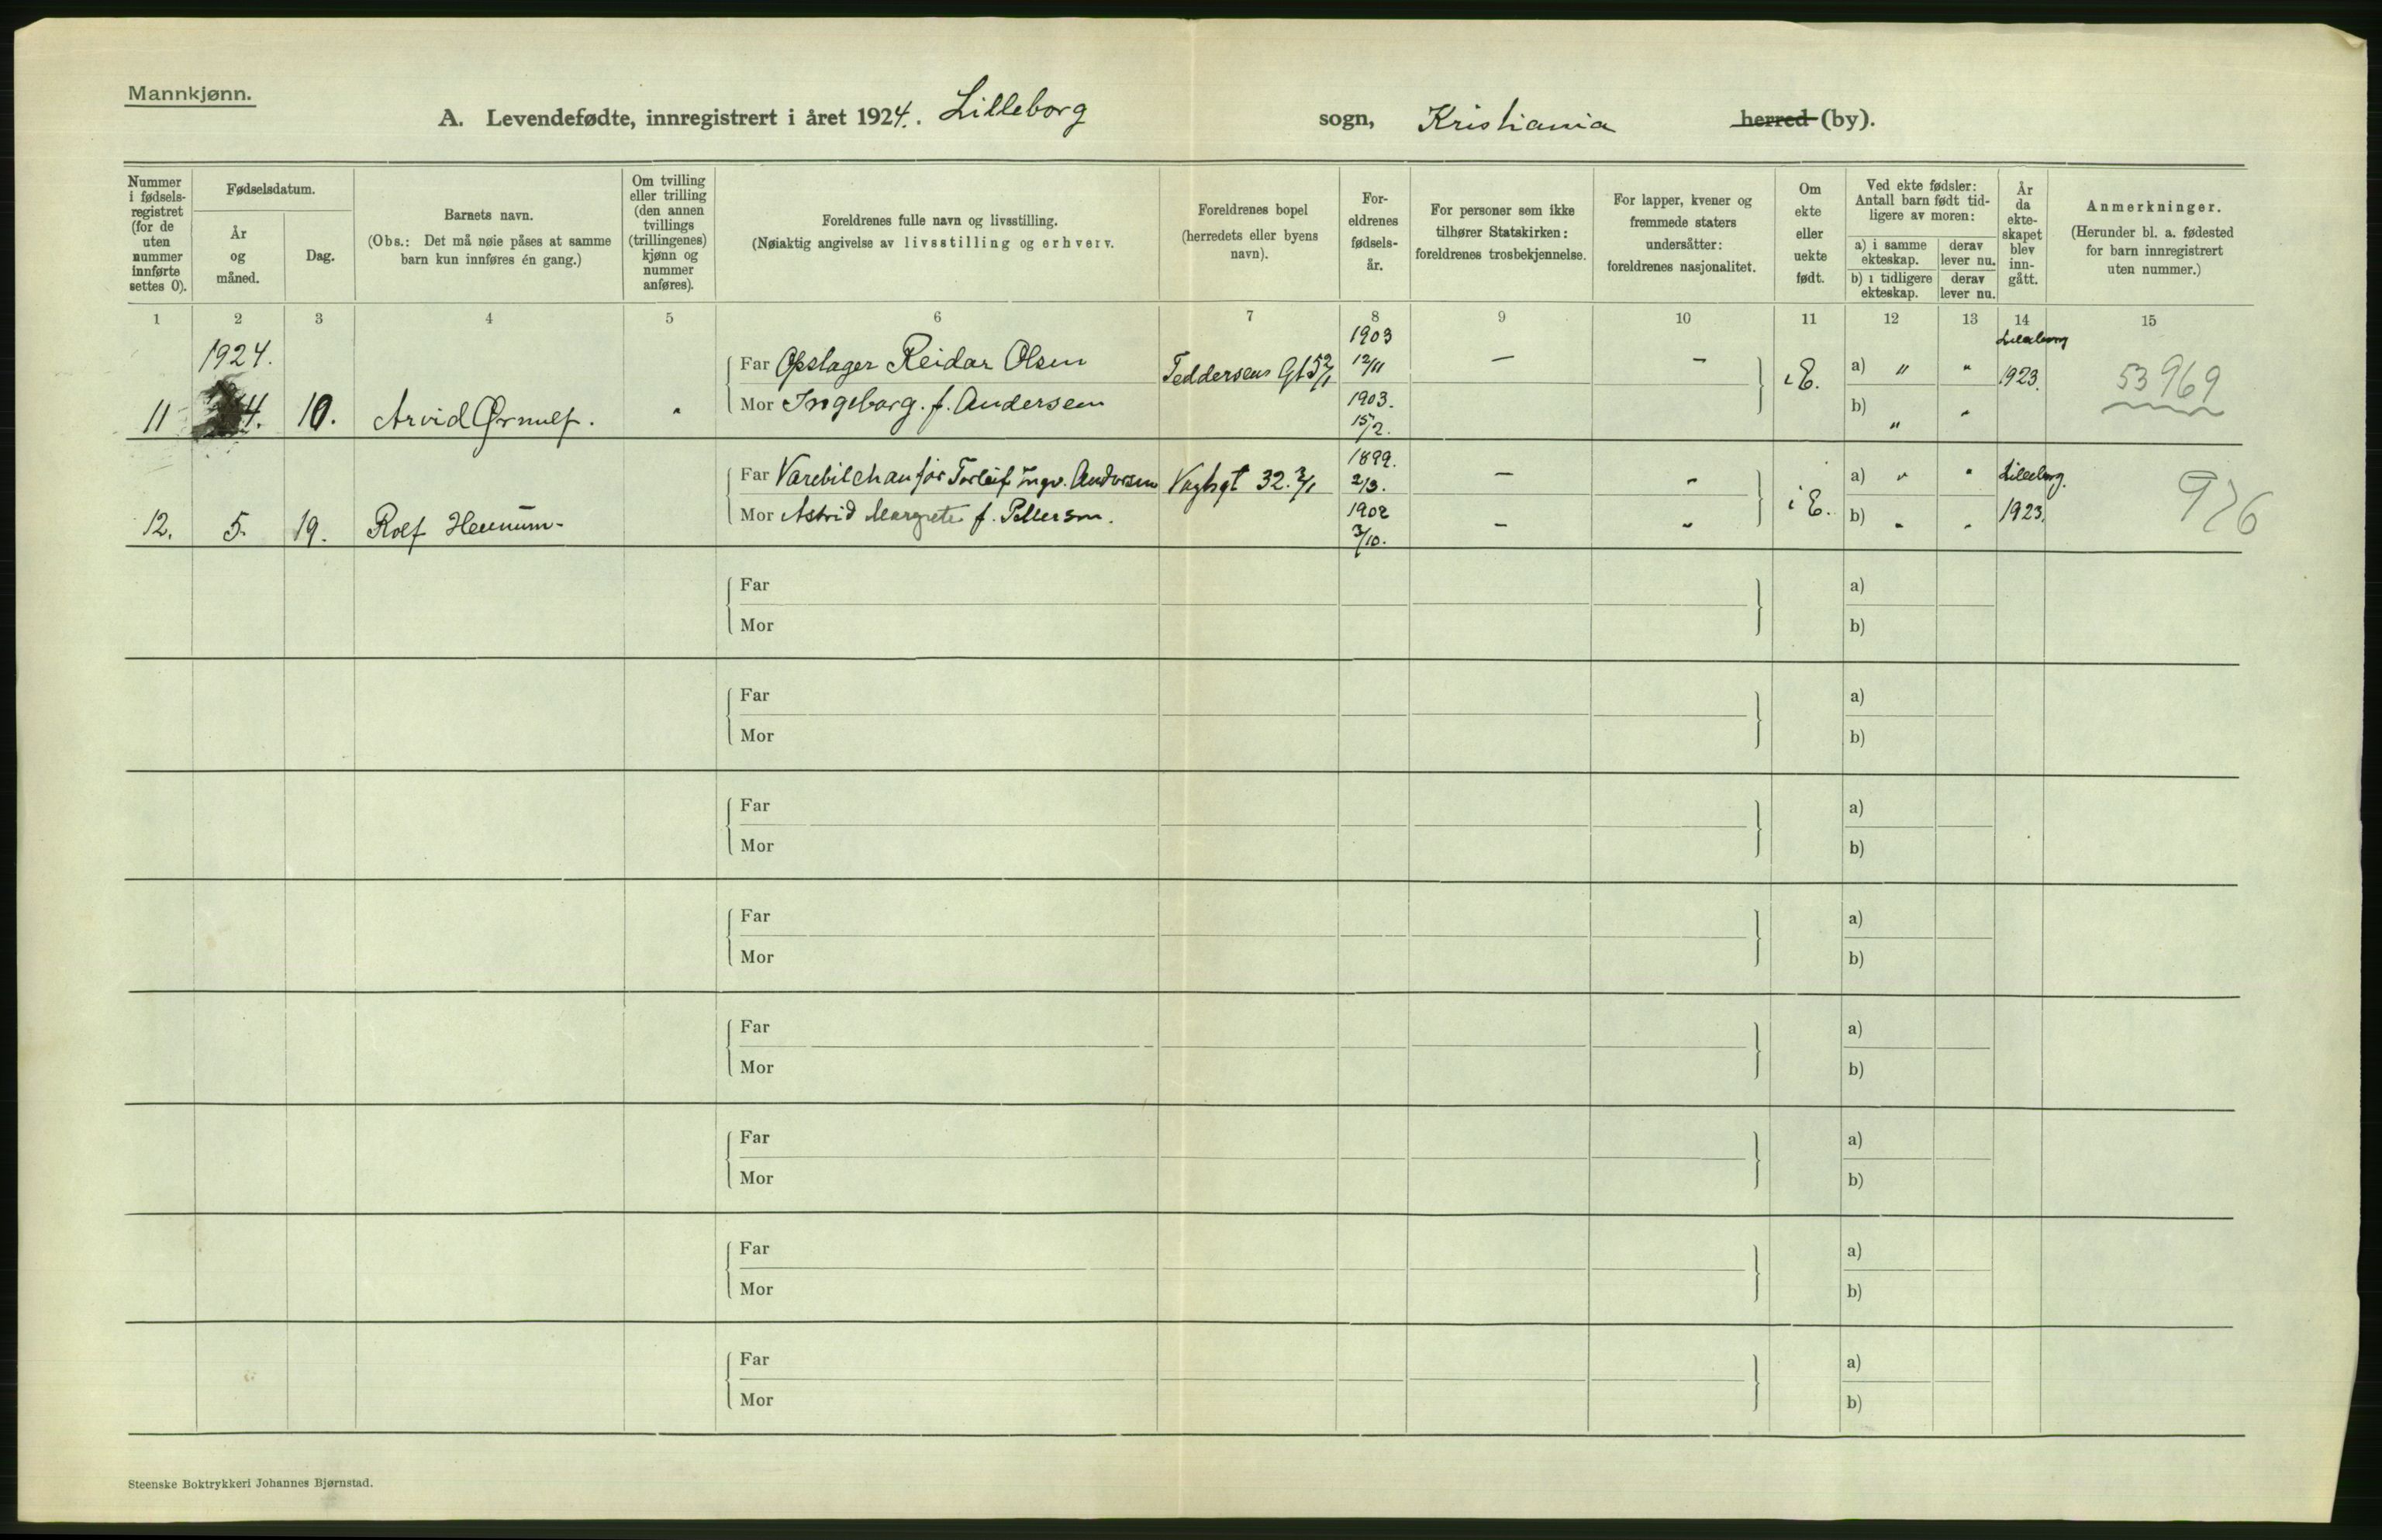 Mannkjønn.
A. Levendefødte, innregistrert i året 1924. Lilleborg sogn, Kristiania herred (by).
Nummer i fødsels-registret (for de uten nummer innførte settes 0).
Fødselsdatum.
År og måned.
Dag.
Barnets navn.
(Obs.: Det må nøie påses at samme barn kun innføres én gang.)
Om tvilling eller trilling (den annen tvillings (trillingenes) kjønn og nummer anføres).
Foreldrenes fulle navn og livsstilling.
(Nøiaktig angivelse av livsstilling og erhverv.
Foreldrenes bopel (herredets eller byens navn).
For-eldrenes fødsels-år.
For personer som ikke tilhører Statskirken: foreldrenes trosbekjennelse.
For lapper, kvener og fremmede staters undersåtter: foreldrenes nasjonalitet.
Om ekte eller uekte født.
Ved ekte fødsler: Antall barn født tid-ligere av moren:
a) i samme ekteskap.
derav lever nu.
b) i tidligere ekteskap.
derav lever nu.
År da ekte-skapet blev inn-gått.
Anmerkninger.
(Herunder bl. a. fødested for barn innregistrert uten nummer.)
1 2 3 4 5 6 7 8 9 10 11 12 13 14 15
1924. 1903 Lilleborg
Far Opslager Reidar Olsen Teddersens Gt 52/1 12/11 — — a) " " 1923. 53969
11 4. 10. Arvid Ørnulf. " Mor Ingeborg. f. Andersen 1903. 15/2. i E. b) " "
Far Varebilchaufför Torleif Ingv. Andersen Vogtsgt 32. 3/1 1899. 2/3. — " a) " " Lilleborg. 976
12. 5. 19. Rolf Hennum- Mor Astrid Margrete f. Pettersen. 1902 3/10. — " i E. b) " " 1923.
Far a)
Mor b)
Far a)
Mor b)
Far a)
Mor b)
Far a)
Mor b)
Far a)
Mor b)
Far a)
Mor b)
Far a)
Mor b)
Far a)
Mor b)
Steenske Boktrykkeri Johannes Bjørnstad.